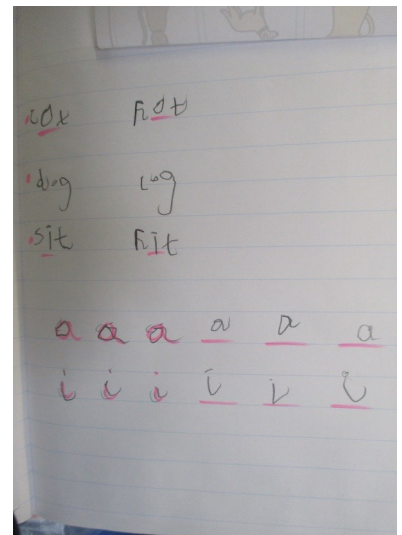 hot
dog log
sit hit
a a a a a a
i i i i i i